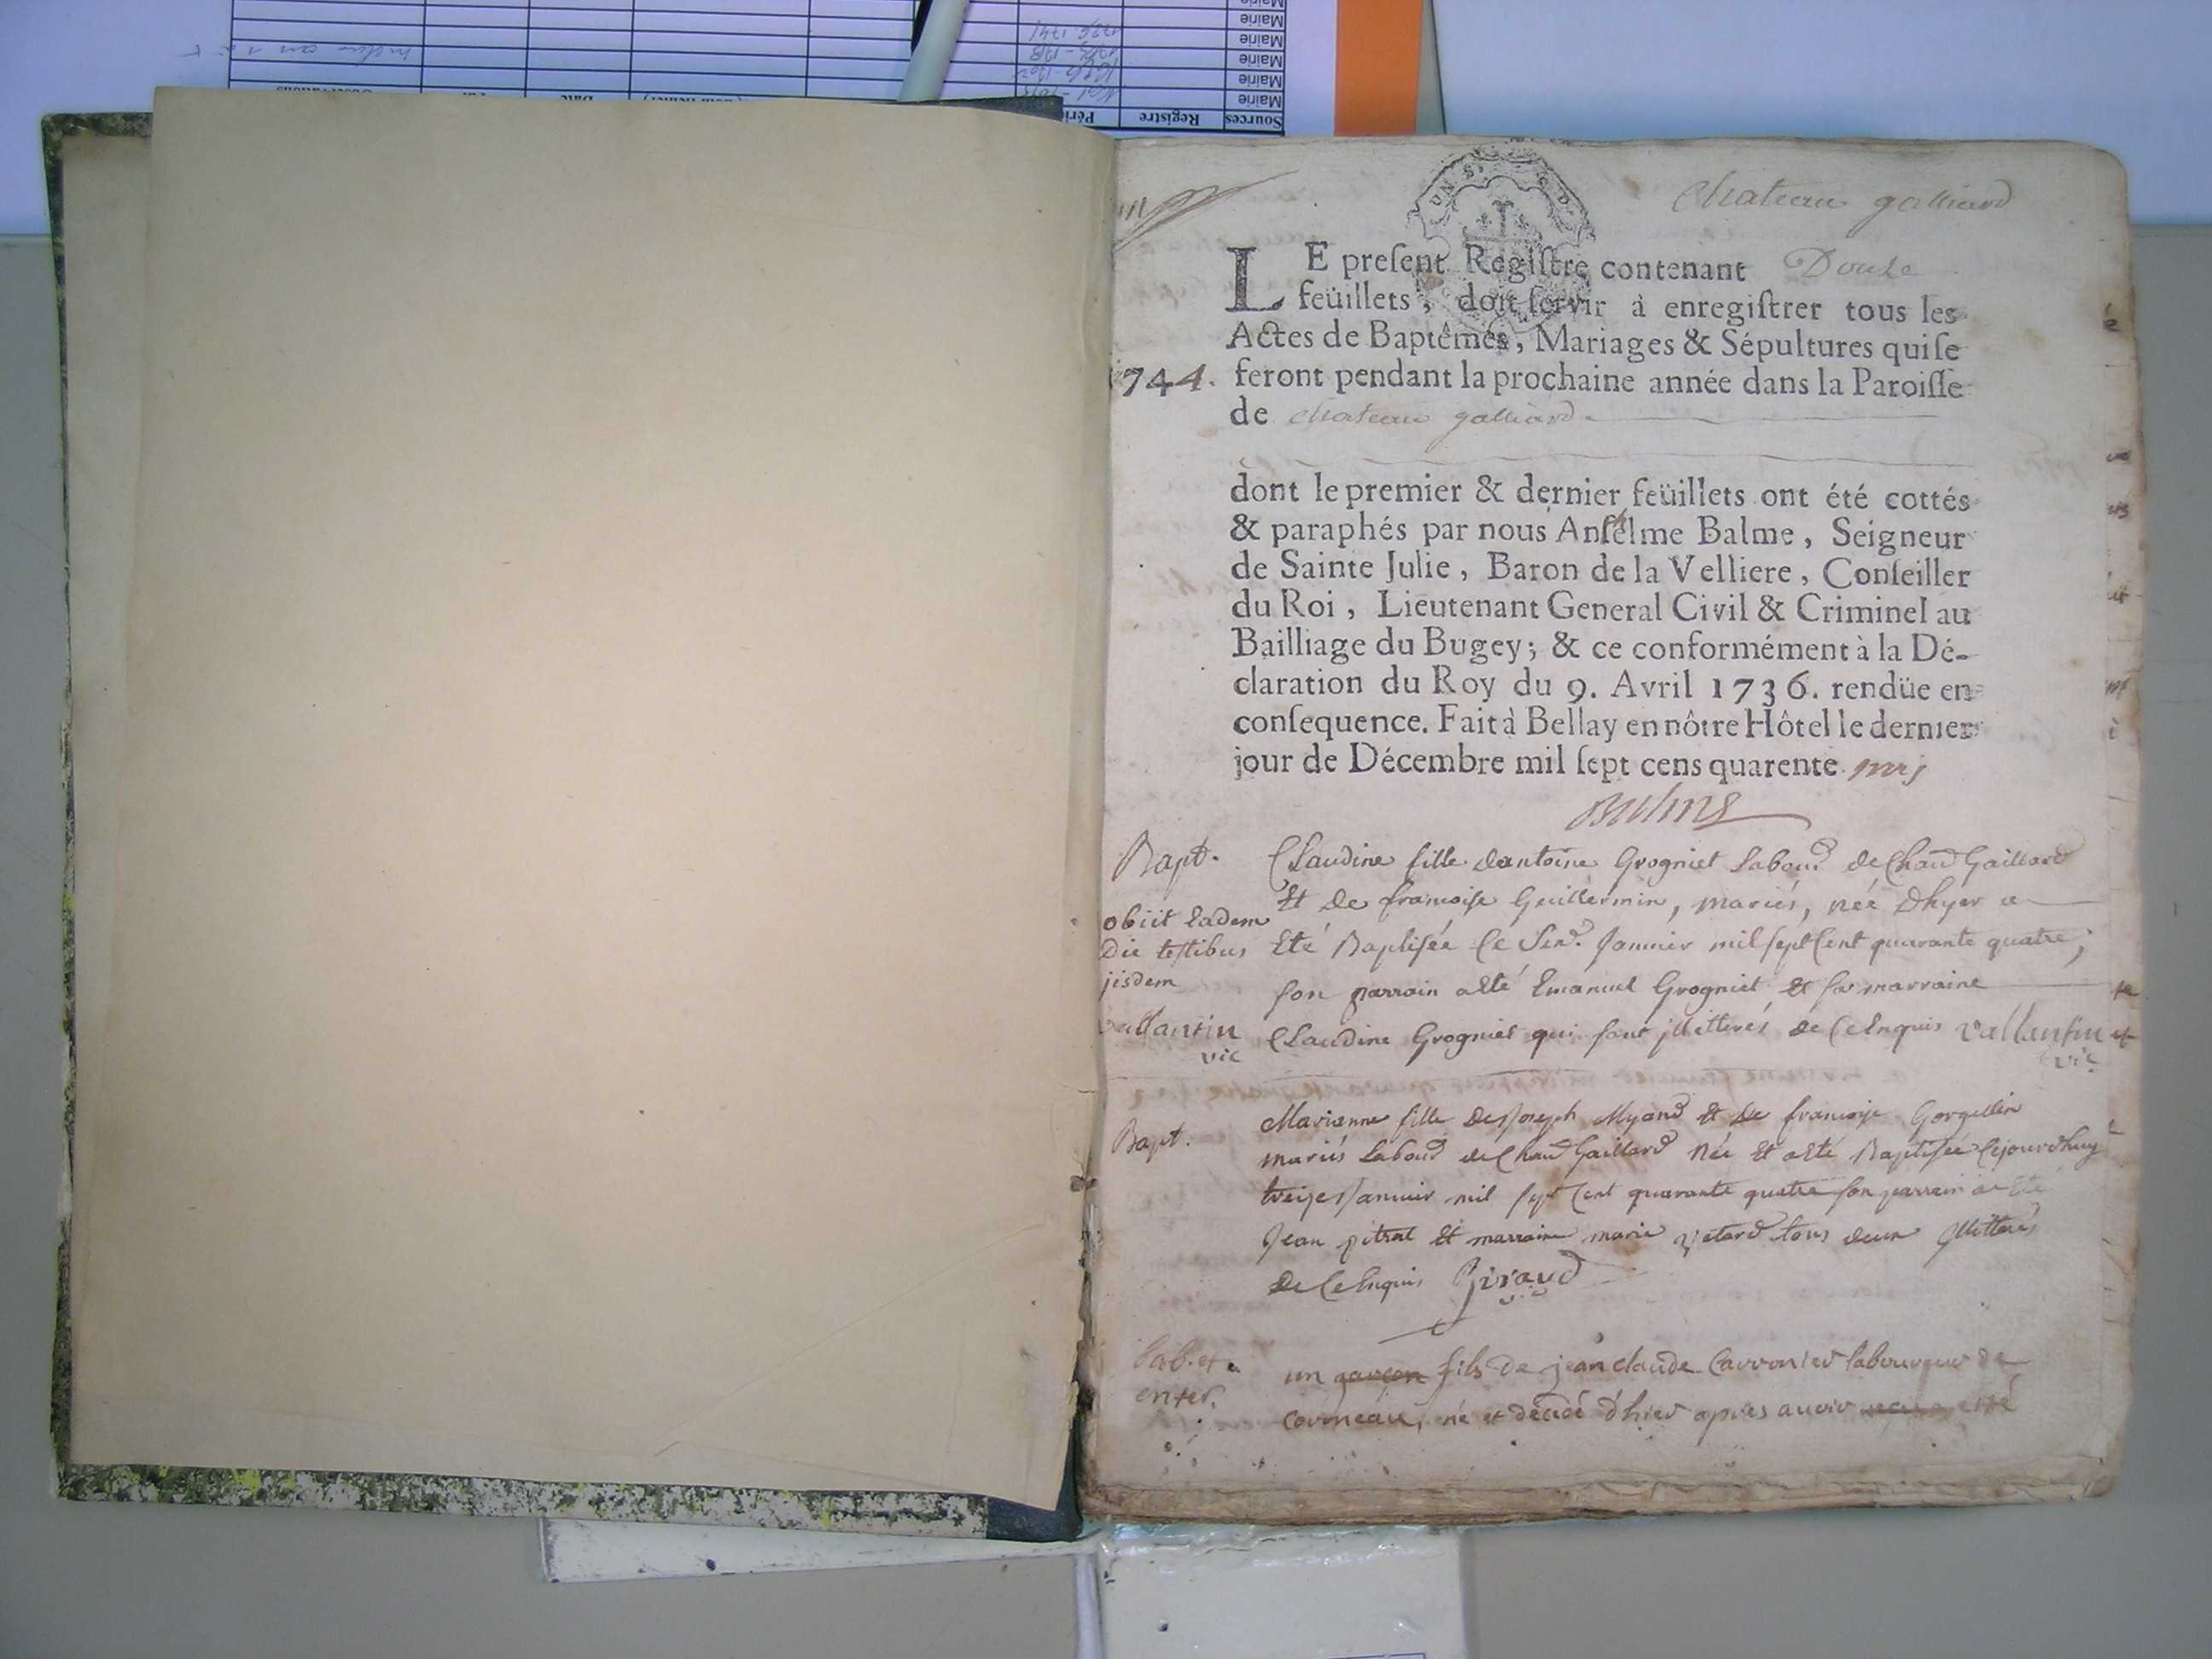 Mairie
Mairie
Mairie
Mairie
Mairie
Sources Registre
chateau galliard
LE preſent Regiſtre contenant Douze
feüillets, doit ſervir à enregiſtrer tous les
Actes de Baptêmes, Mariages & Sépultures qui ſe
1744. feront pendant la prochaine année dans la Paroiſſe
de chateau galliard
dont le premier & dernier feüillets ont été cottés
& paraphés par nous Anſelme Balme, Seigneur
de Sainte Julie, Baron de la Velliere, Conſeiller
du Roi, Lieutenant General Civil & Criminel au
Bailliage du Bugey; & ce conformément à la Dé-
claration du Roy du 9. Avril 1736. rendüe en
conſequence. Fait à Bellay en nôtre Hôtel le dernier
jour de Décembre mil ſept cens quarente
Balme
Bapt. Claudine fille dantoine Grogniet Labour de Chau Gaillard
Et de francoise Guillermin, mariés, née dhyer a
obiit Eadem
Die testibus Eté Baptisée le Janvier mil sept Cent quarante quatre;
jisdem son parrain a Eté Emanuel Grogniet et sa marraine
vallantin Claudine Grogniet qui sont jllitterés de Ce Enquis vallantin
vic vic
Bapt. Marianne fille de Joseph Myand Et de francoise Gorgellin
mariés Labour de Chau Gaillard Née Et a Eté Baptisée Cejourdhuy
treize Janvier mil sept Cent quarante quatre son parrain a Eté
Jean pitrat Et marraine marie tous deux jllitterés
de Ce Enquis Giraud
bab. et
enter. un garçon fils de jean claude Carronier laboureur de
cormeau, né et décédé d'hier apres auoir eté